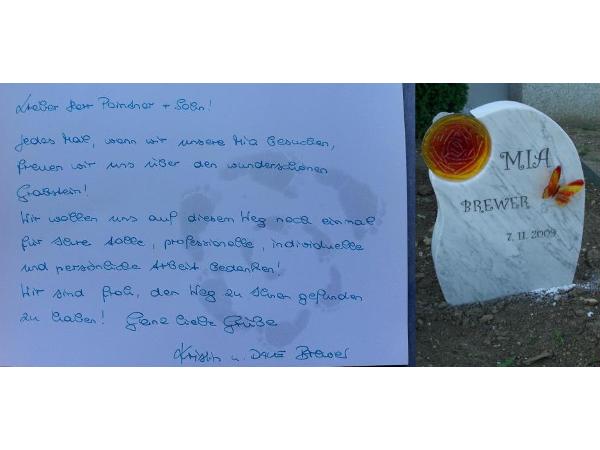 Lieber Herr Pointner + Sohn!
Jedes Mal, wenn wir unsere Mia besuchen,
freuen wir uns über den wunderschönen
Grabstein!
Wir wollen uns auf diesem Weg noch einmal
für Ihre tolle, professionelle, individuelle
und persönliche Arbeit bedanken!
Wir sind froh, den Weg zu Ihnen gefunden
zu haben! Ganz liebe Grüße
Kristin u. Dave Brewer
MIA
BREWER
7. 11. 2009